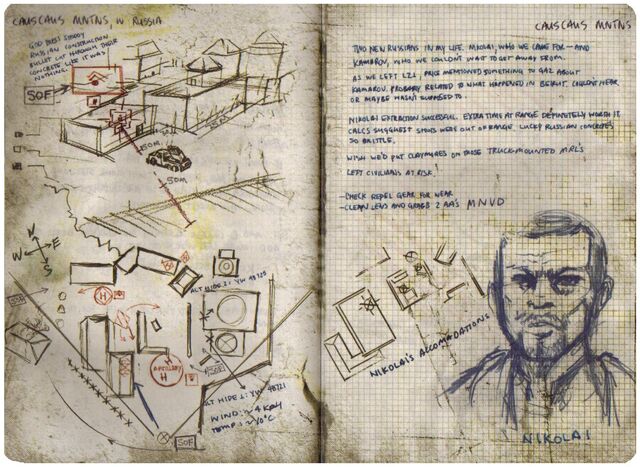 CAUSCAUS MNTNS, W RUSSIA
GOD BLESS SHODDY
RUSSIAN CONSTRUCTION
BULLET CUT THROUGH THEIR
CONCRETE LIKE IT WAS
NOTHING.
SOF
50M
N
W
E
S
ALT HIDE 2: YW 48720
H
H
ARTILLERY
ALT HIDE 1: YW 48721
WIND: ~4
TEMP: ~10°C
SOF
CAUSCAUS MNTNS
TWO NEW RUSSIANS IN MY LIFE. NIKOLAI, WHO WE CAME FOR - AND
KAMAROV, WHO WE COULDN'T WAIT TO GET AWAY FROM.
AS WE LEFT LZ1, PRICE MENTIONED SOMETHING TO GAZ ABOUT
KAMAROV. PROBABLY RELATED TO WHAT HAPPENED IN BEIRUT. COULDN'T HEAR.
OR MAYBE WASN'T SUPPOSED TO.
NIKOLAI EXTRACTION SUCCESSFUL. EXTRA TIME AT RANGE DEFINETELY WORTH IT
CALCS SUGGEST SHOTS WERE OUT OF RANGE. LUCKY RUSSIAN CONCRETE'S
SO BRITTLE.
WISH WE'D PUT CLAYMORES ON THOSE TRUCK-MOUNTED MRL'S
LEFT CIVILIANS AT RISK.
-CHECK REBEL GEAR FOR WEAR
-CLEAN LENS AND GRABB 2 AA'S MNVD
NIKOLAI'S ACCOMMODATIONS
NIKOLAI